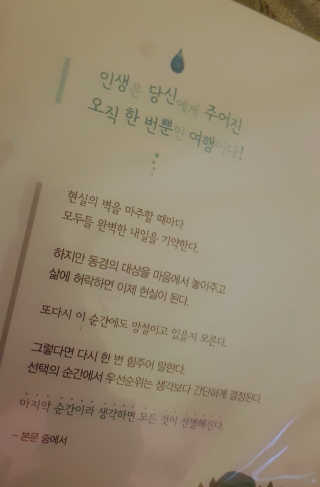 인생은 당신에게 주어진
오직 한 번뿐인 여행이다!
현실의 벽을 마주할 때마다
모두들 완벽한 내일을 기약한다.
하지만 동경의 대상을 마음에서 놓아주고
삶에 허락하면 이제 현실이 된다.
또다시 이 순간에도 망설이고 있을지 모른다.
그렇다면 다시 한 번 힘주어 말한다.
선택의 순간에서 우선순위는 생각보다 간단하게 결정된다.
마지막 순간이라 생각하면 모든 것이 선명해진다.
- 본문 중에서